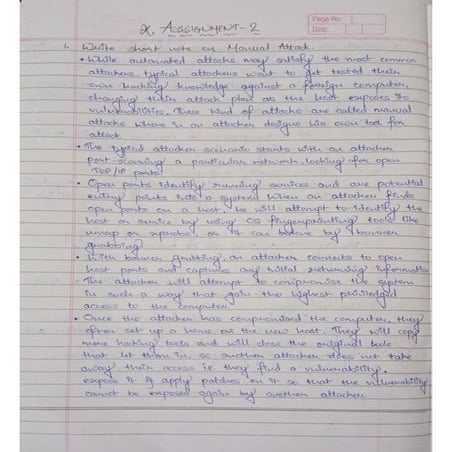 Page No.
Date.
x. ASSIGNMENT - 2
1. Write short note on Manual Attack.
• While automated attacks may satisfy the most common
attackers, typical attackers want to get tested their
own hacking knowledge against a foreign computer,
changing their attack plan as the host exposes its
vulnerabilities. These kind of attacks are called manual
attacks where in an attacker designs his own tool for
attack.
• The typical attacker scenario starts with an attacker
port-scanning a particular network, looking for open
TCP/IP ports.
• Open ports identify running services and are potential
entry points into a system. When an attacker finds
open ports on a host, he will attempt to identify the
host or service by using OS fingerprinting tools like
nmap or xprobe, or it can be by banner
grabbing.
• With banner grabbing, an attacker connects to open
host ports and captures any initial returning information
- The attacker will attempt to compromise the system
in such a way that gain the highest priviledged
access to the computer.
• Once the attacker has compromised the computer, they
often set up a home on the new host. They will copy
more hacking tools and will close the original hole
that let them in, so another attacker does not take
away their access i.e. they find a vulnerability,
expose it & apply patches on it so that the vulnerability
cannot be exposed again by another attacker.